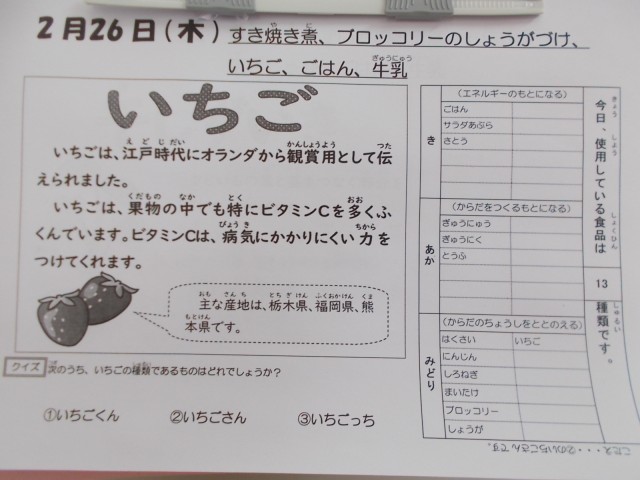 2月26日(木) すき焼き煮、ブロッコリーのしょうがづけ、
いちご、ごはん、牛乳
いちご
いちごは、江戸時代にオランダから観賞用として伝
えられました。
いちごは、果物の中でも特にビタミンCを多くふ
くんでいます。ビタミンCは、病気にかかりにくい力を
つけてくれます。
主な産地は、栃木県、福岡県、熊
本県です。
クイズ 次のうち、いちごの種類であるものはどれでしょうか?
①いちごくん ②いちごさん ③いちごっち
き
(エネルギーのもとになる)
ごはん
サラダあぶら
さとう
あか
(からだをつくるもとになる)
ぎゅうにゅう
ぎゅうにく
とうふ
みどり
(からだのちょうしをととのえる)
はくさい いちご
にんじん
しろねぎ
まいたけ
ブロッコリー
しょうが
今日、使用している食品は
13
種類です。
こたえ・・・②のいちごさんです。